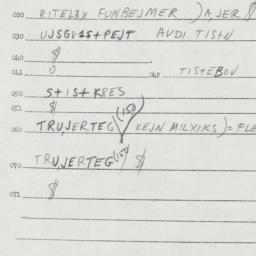 020 RITELBY FUNBEJMER ) AJER $
030 UJSG81S+PEJT AVDI TIS+N
040 $
041 0 042 TIS+EBOV
050 S+IS+K8ES
051 $
060 TRUJERTEG (150) KEJN MILXIKS ) = FLE
070 TRUJERTEG (150) $
071 $